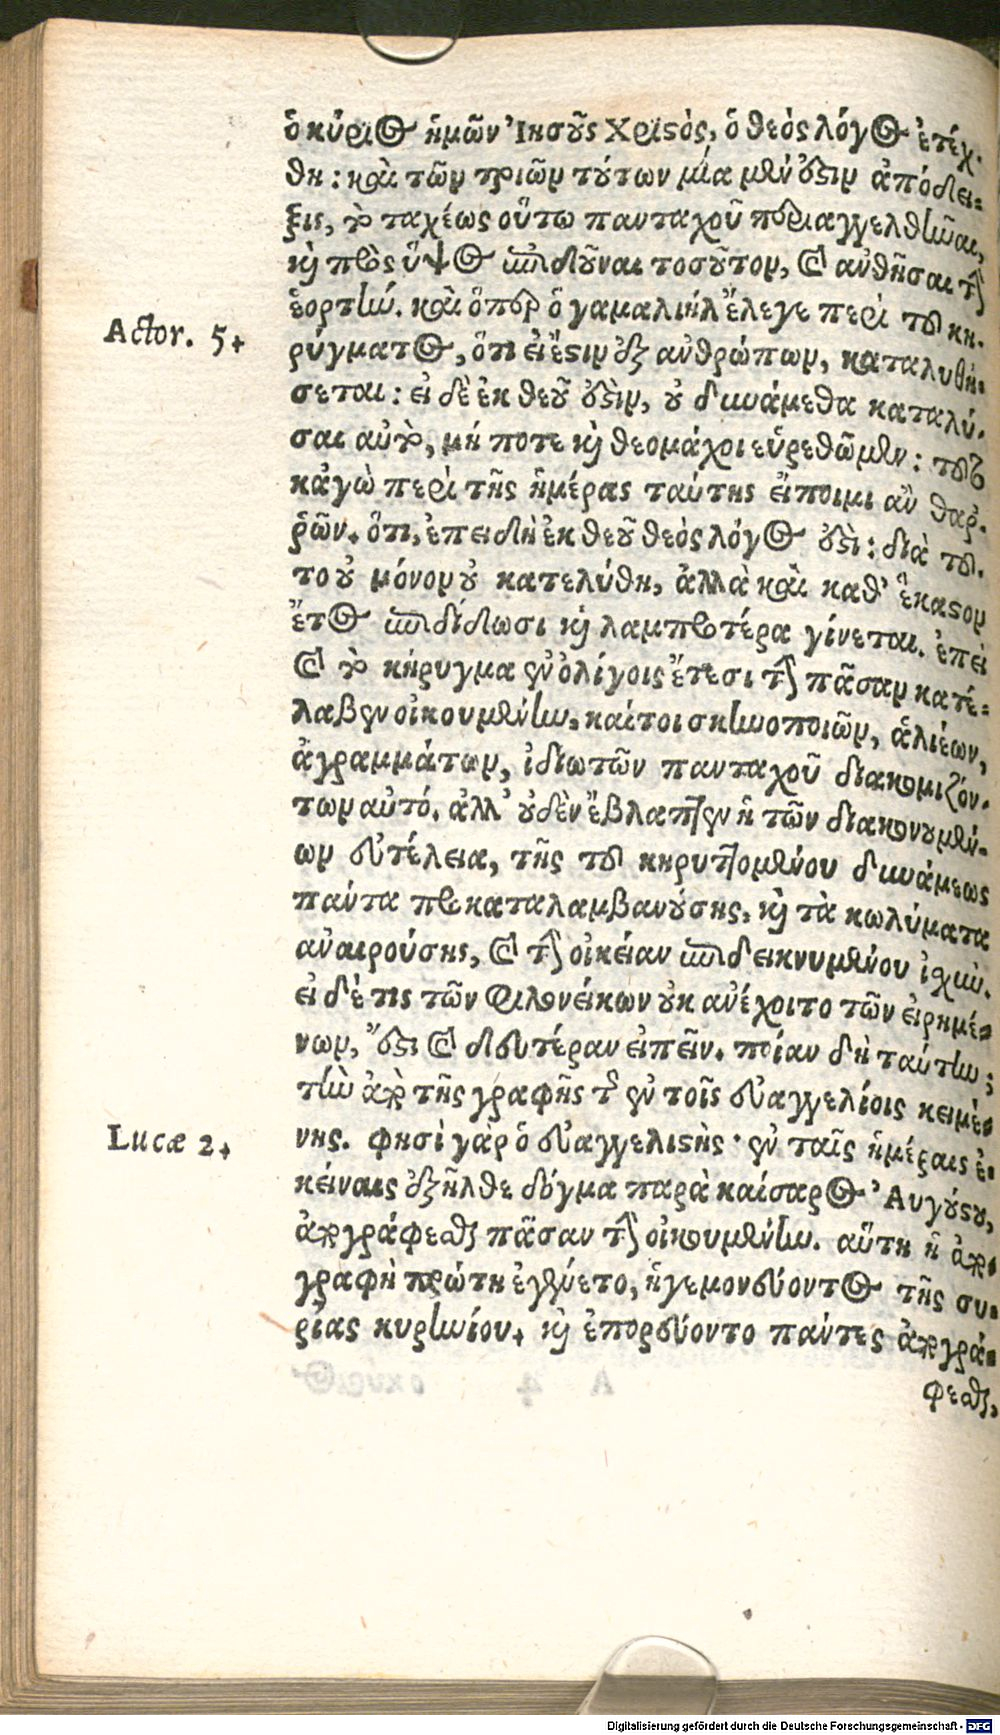 ὁ κύριος ἡμῶν Ἰησοῦς Χριστὸς, ὁ θεὸς λόγος ἐτέχ-
θη: καὶ τῶν τριῶν τούτων μία μέν ἐστιν ἀπόδει-
ξις, τὸ ταχέως οὕτω πανταχοῦ περιαγγελθῆναι,
καὶ πρὸς ὕψος ἐπιδοῦναι τοσοῦτον, καὶ ἀνθῆσαι τὴν
ἑορτήν. καὶ ὅπερ ὁ γαμαλιὴλ ἔλεγε περὶ τοῦ κη-
Actor. 5.
ρύγματος, ὅτι εἰ ἔστιν ἐξ ἀνθρώπων, καταλυθή-
σεται: εἰ δὲ ἐκ θεοῦ ἐστὶν, οὐ δυνάμεθα καταλύ-
σαι αὐτὸ, μή ποτε καὶ θεομάχοι εὑρεθῶμεν: τοῦτο
κἀγὼ περὶ τῆς ἡμέρας ταύτης εἴποιμι ἂν θαρ-
ρῶν. ὅτι, ἐπειδὴ ἐκ θεοῦ θεὸς λόγος ἐστὶ: διὰ τοῦ-
το οὐ μόνον οὐ κατελύθη, ἀλλὰ καὶ καθ' ἕκαστον
ἔτος ἐπιδίδωσι καὶ λαμπροτέρα γίνεται. ἐπεὶ
καὶ τὸ κήρυγμα ἐν ὀλίγοις ἔτεσι τὴν πᾶσαν κατέ-
λαβεν οἰκουμένην, καίτοι σκηνοποιῶν, ἁλιέων,
ἀγραμμάτων, ἰδιωτῶν πανταχοῦ διακομιζόν-
των αὐτό. ἀλλ' οὐδὲν ἔβλαπτεν ἡ τῶν διακονουμέν-
ων εὐτέλεια, τῆς τοῦ κηρυττομένου δυνάμεως
πάντα προκαταλαμβανούσης, καὶ τὰ κωλύματα
ἀναιρούσης, καὶ τὴν οἰκείαν ἐπιδεικνυμένου ἰχύν.
εἰ δέ τις τῶν φιλονείκων οὐκ ἀνέχοιτο τῶν εἰρημέ-
νων, ἔστι καὶ δευτέραν εἰπεῖν. ποίαν δὴ ταύτην;
τὴν ἀπὸ τῆς γραφῆς τῆς ἐν τοῖς εὐαγγελίοις κειμέ-
Lucæ 2.
νης. φησὶ γὰρ ὁ εὐαγγελιστὴς· ἐν ταῖς ἡμέραις ἐ-
κείναις ἐξῆλθε δόγμα παρὰ καίσαρος Αὐγούστου,
ἀπογράφεσθαι πᾶσαν τὴν οἰκουμένην. αὕτη ἡ ἀπο-
γραφὴ πρώτη ἐγένετο, ἡγεμονεύοντος τῆς συ-
ρίας κυρηνίου. καὶ ἐπορεύοντο πάντες ἀπογρά-
φεσθαι,
Digitalisierung gefördert durch die Deutsche Forschungsgemeinschaft - DFG